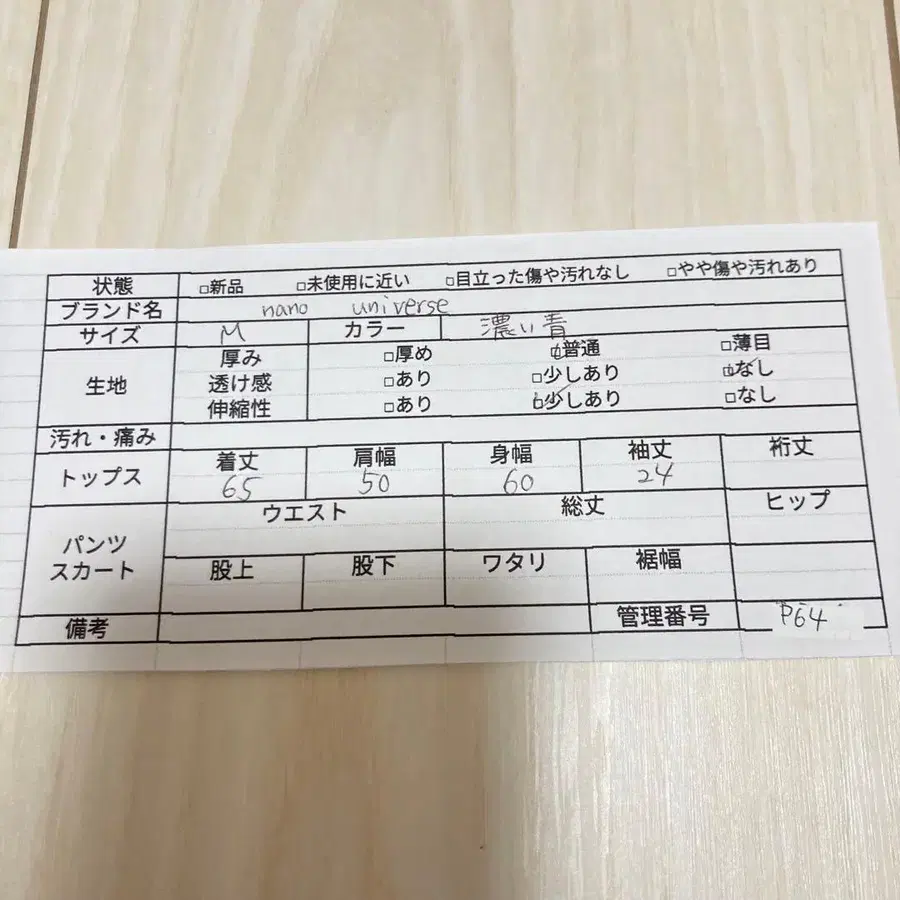 状態 □新品 □未使用に近い □目立った傷や汚れなし □やや傷や汚れあり
ブランド名 nano universe
サイズ M カラー 濃い青
生地 厚み □厚め □普通 □薄目
透け感 □あり □少しあり □なし
伸縮性 □あり □少しあり □なし
汚れ・痛み
トップス 着丈 肩幅 身幅 袖丈 裄丈
65 50 60 24
パンツ スカート ウエスト 総丈 ヒップ
股上 股下 ワタリ 裾幅
備考 管理番号 P64